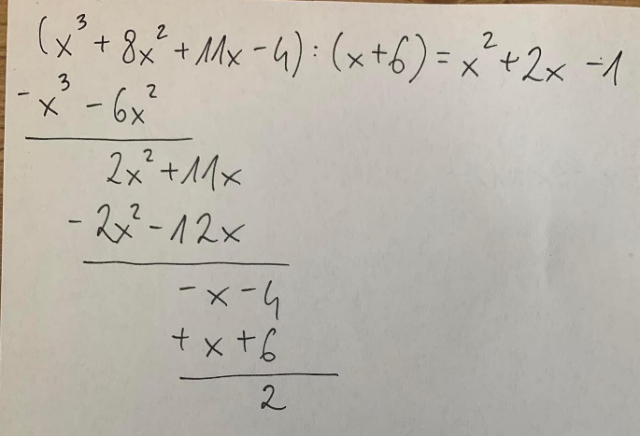 (x³ + 8x² + 11x - 4) : (x + 6) = x² + 2x - 1
- x³ - 6x²
2x² + 11x
- 2x² - 12x
- x - 4
+ x + 6
2